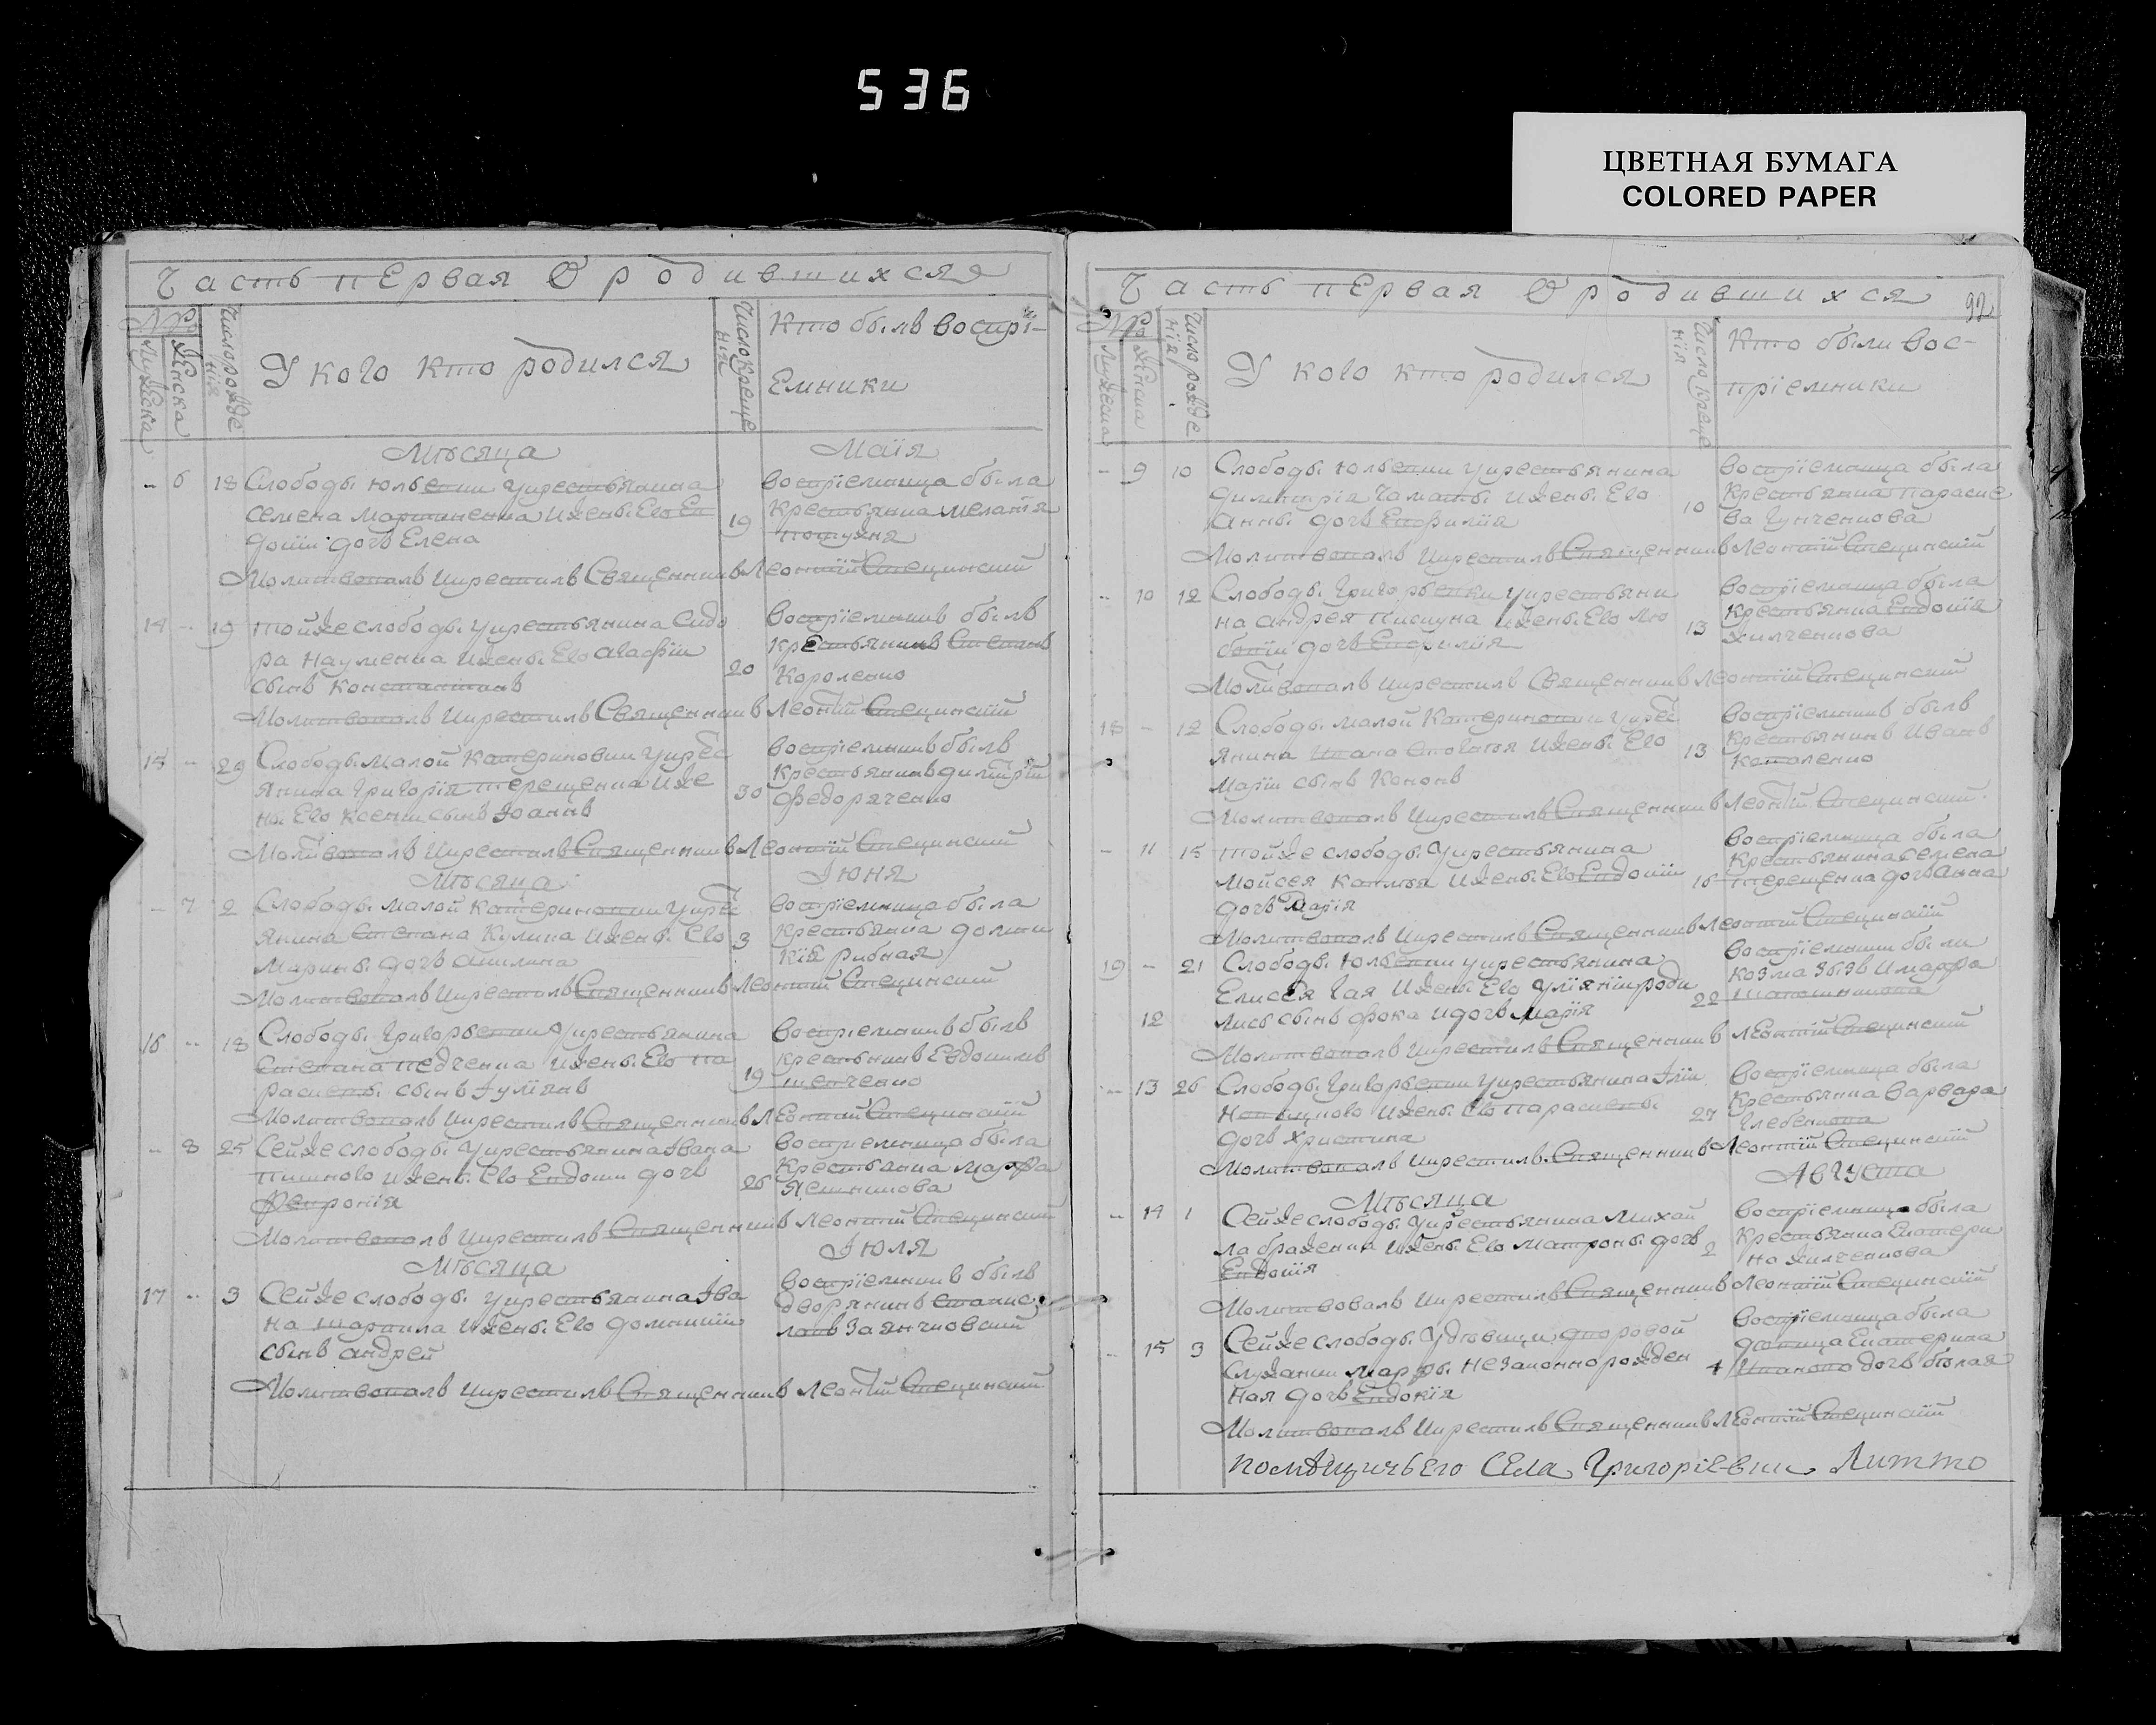 536
ЦВЕТНАЯ БУМАГА
COLORED PAPER
Часть пЕрвая О родившихся
Число рожде
нія
У кого кто родился
Число креще
нія
Кто былъ воспрі-
Емники
Мѣсяца Маія
6 18 Слободы Юльевки укрестьянина
Семена Мартиненка ижены Его Ев
докіи дочь Елена
19
воспріемница была
Крестьянка меланія
Молитвовалъ икрестилъ Священникъ Леонтій Специнскій
14 19 тойже слободы укрестьянина Сидо
ра Науменка ижены Его Агафіи
сынъ константинъ
20
воспріемникъ былъ
Крестьянинъ Степанъ
Короленко
Молитвовалъ икрестилъ Священникъ Леонтій Специнскій
15 29 Слободы Малой Катериновки укрес
янина Григорія терещенка иже
ны Его Ксеніи сынъ Іоаннъ
30
воспріемникъ былъ
Крестьянинъ димитрій
Федоряченко
Молитвовалъ икрестилъ Священникъ Леонтій Специнскій
Мѣсяца Іюня
7 2 Слободы Малой Катериновки укрест
янина Степана Кулика ижены Его
Марины дочь Акилина
3
воспріемница была
Крестьянка домни
кія рибная
Молитвовалъ икрестилъ Священникъ Леонтій Специнскій
16 18 Слободы Григорьевки укрестьянина
Степана педченка ижены Его па
раскевы сынъ Іуліянъ
19
воспріемникъ былъ
крестьянинъ Евдокимъ
шевченко
Молитвовалъ икрестилъ Священникъ ЛЕонтій Специнскій
8 25 Сейже слободы укрестьянина Івана
пишного ижены Его Евдокіи дочь
Февронія
26
воспріемница была
Крестьянка Марфа
Молитвовалъ икрестилъ Священникъ Леонтій Специнскій
Мѣсяца Іюля
17 3 Сейже слободы укрестьянина Іва
на шарпила ижены Его домникіи
сынъ андрей
воспріемникъ былъ
дворянинъ станис
лавъ Заянчковскій
Молитвовалъ икрестилъ Священникъ Леонтій Специнскій
Часть пЕрвая О родившихся
92
Число рожде
нія
У кого кто родился
Число креще
нія
Кто были вос-
пріемники
9 10 Слободы Юльевки укрестьянина
Димитрія Чаматы ижены Его
Анны дочь Евфимія
10
воспріемница была
Крестьянка параске
ва Гунченкова
Молитвовалъ икрестилъ Священникъ Леонтій Специнскій
10 12 Слободы Григорьевки укрестьяни
на андрея пискуна ижены Его Лю
бовіи дочь Евфимія
13
воспріемница была
Крестьянка Евдокія
хилченкова
Молитвовалъ икрестилъ Священникъ Леонтій Специнскій
18 12 Слободы малой Катериновки укрест
янина ижены Его
Маріи сынъ Кононъ
13
воспріемникъ былъ
Крестьянинъ Иванъ
Коваленко
Молитвовалъ икрестилъ Священникъ Леонтій Специнскій
11 15 тойже слободы укрестьянина
Мойсея ижены Его Евдокіи
дочь Марія
16
воспріемница была
Крестьянина Семена
терещенка дочь анна
Молитвовалъ икрестилъ Священникъ Леонтій Специнскій
19 21 Слободы Юльевки укрестьянина
Елисея Гая ижены Его Уліяніи роди
12 лись сынъ фока идочь Марія
22
воспріемники были
козма зызъ имарфа
Молитвовалъ икрестилъ Священникъ ЛЕонтій Специнскій
13 26 Слободы Григорьевки укрестьянина Іліи
ижены Его параскевы
дочь христина
27
воспріемница была
Крестьянка варвара
Молитвовалъ икрестилъ Священникъ Леонтій Специнскій
Мѣсяца Августа
14 1 Сейже слободы укрестьянина михай
ла браженка ижены Его матроны дочь
Евдокія
2
воспріемница была
Крестьянка Екатери
на хилченкова
Молитвовалъ икрестилъ Священникъ Леонтій Специнскій
15 3 Сейже слободы удѣвици дворовой
служанки Марфы незаконнорожден
ная дочь Евдокія
4
воспріемница была
дѣвица Екатерина
Иванова дочь бѣлая
Молитвовалъ икрестилъ Священникъ ЛЕонтій Специнскій
помѣщичьЕго сЕла Григоріевки Литто